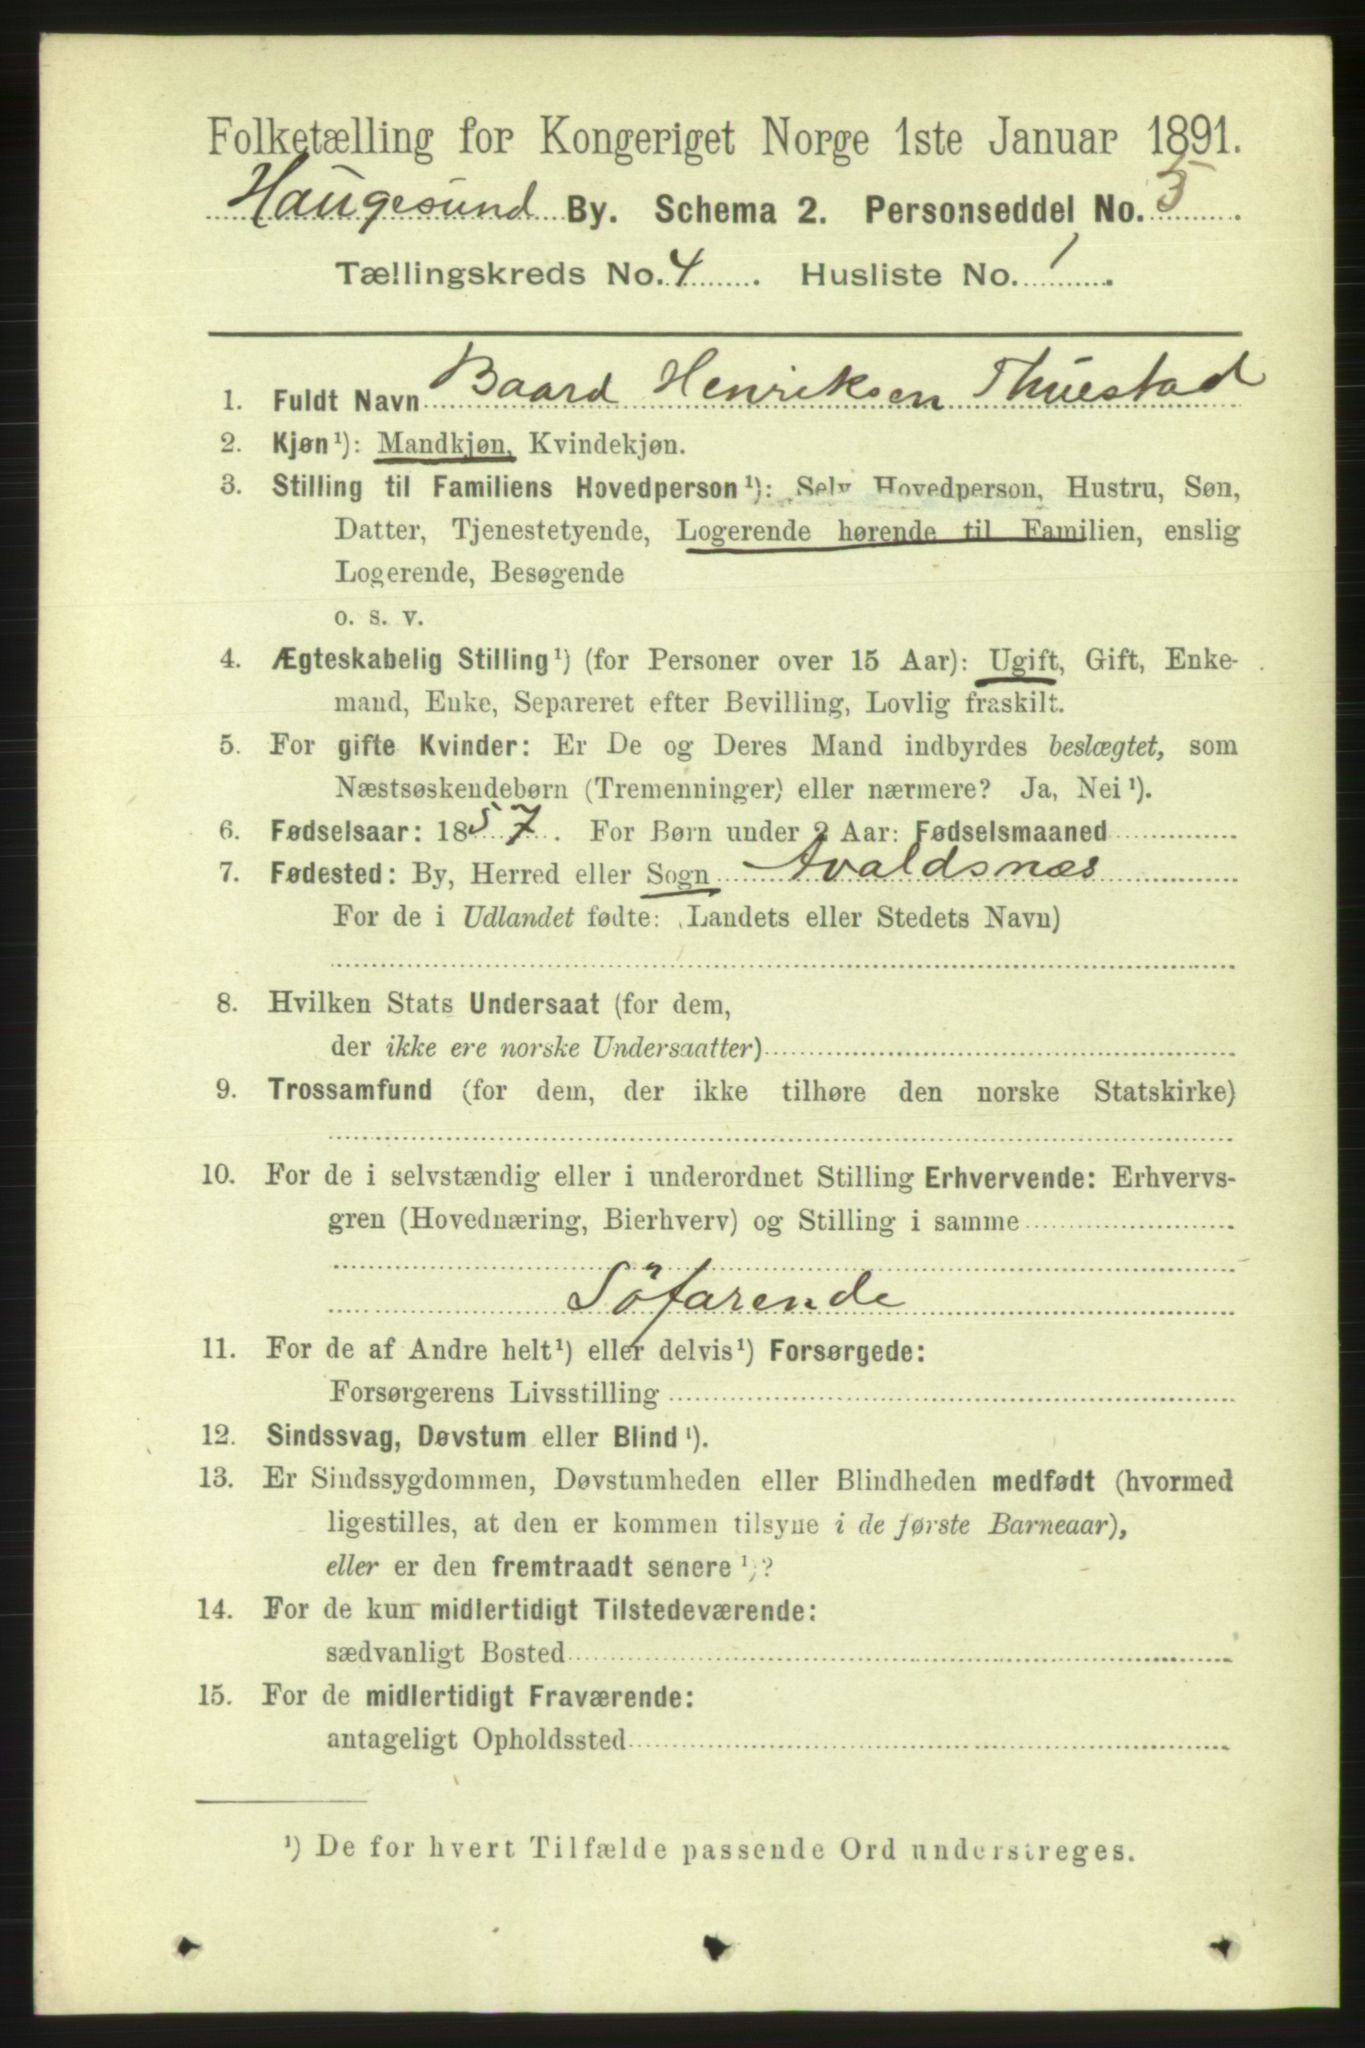 Folketælling for Kongeriget Norge 1ste Januar 1891.
Haugesund By. Schema 2. Personseddel No. 5
Tællingskreds No. 4. Husliste No. 1.
1. Fuldt Navn Baard Henriksen Thuestad
2. Kjøn¹): Mandkjøn, Kvindekjøn.
3. Stilling til Familiens Hovedperson¹): Selv Hovedperson, Hustru, Søn,
Datter, Tjenestetyende, Logerende hørende til Familien, enslig
Logerende, Besøgende
o. s. v.
4. Ægteskabelig Stilling¹) (for Personer over 15 Aar): Ugift, Gift, Enke-
mand, Enke, Separeret efter Bevilling, Lovlig fraskilt.
5. For gifte Kvinder: Er De og Deres Mand indbyrdes beslægtet, som
Næstsøskendebørn (Tremenninger) eller nærmere? Ja, Nei¹).
6. Fødselsaar: 1857. For Børn under 2 Aar: Fødselsmaaned
7. Fødested: By, Herred eller Sogn Avaldsnæs
For de i Udlandet fødte: Landets eller Stedets Navn)
8. Hvilken Stats Undersaat (for dem,
der ikke ere norske Undersaatter)
9. Trossamfund (for dem, der ikke tilhøre den norske Statskirke)
10. For de i selvstændig eller i underordnet Stilling Erhvervende: Erhvervs-
gren (Hovednæring, Bierhverv) og Stilling i samme
Söfarende
11. For de af Andre helt¹) eller delvis¹) Forsørgede:
Forsørgerens Livsstilling
12. Sindssvag, Døvstum eller Blind¹).
13. Er Sindssygdommen, Døvstumheden eller Blindheden medfødt (hvormed
ligestilles, at den er kommen tilsyne i de første Barneaar),
eller er den fremtraadt senere¹)?
14. For de kun midlertidigt Tilstedeværende:
sædvanligt Bosted
15. For de midlertidigt Fraværende:
antageligt Opholdssted
¹) De for hvert Tilfælde passende Ord understreges.